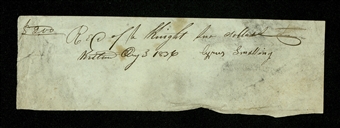 $2.00
Recd of Mr Knight two dollars
Weston Aug 3 1836 Cyrus Smalling